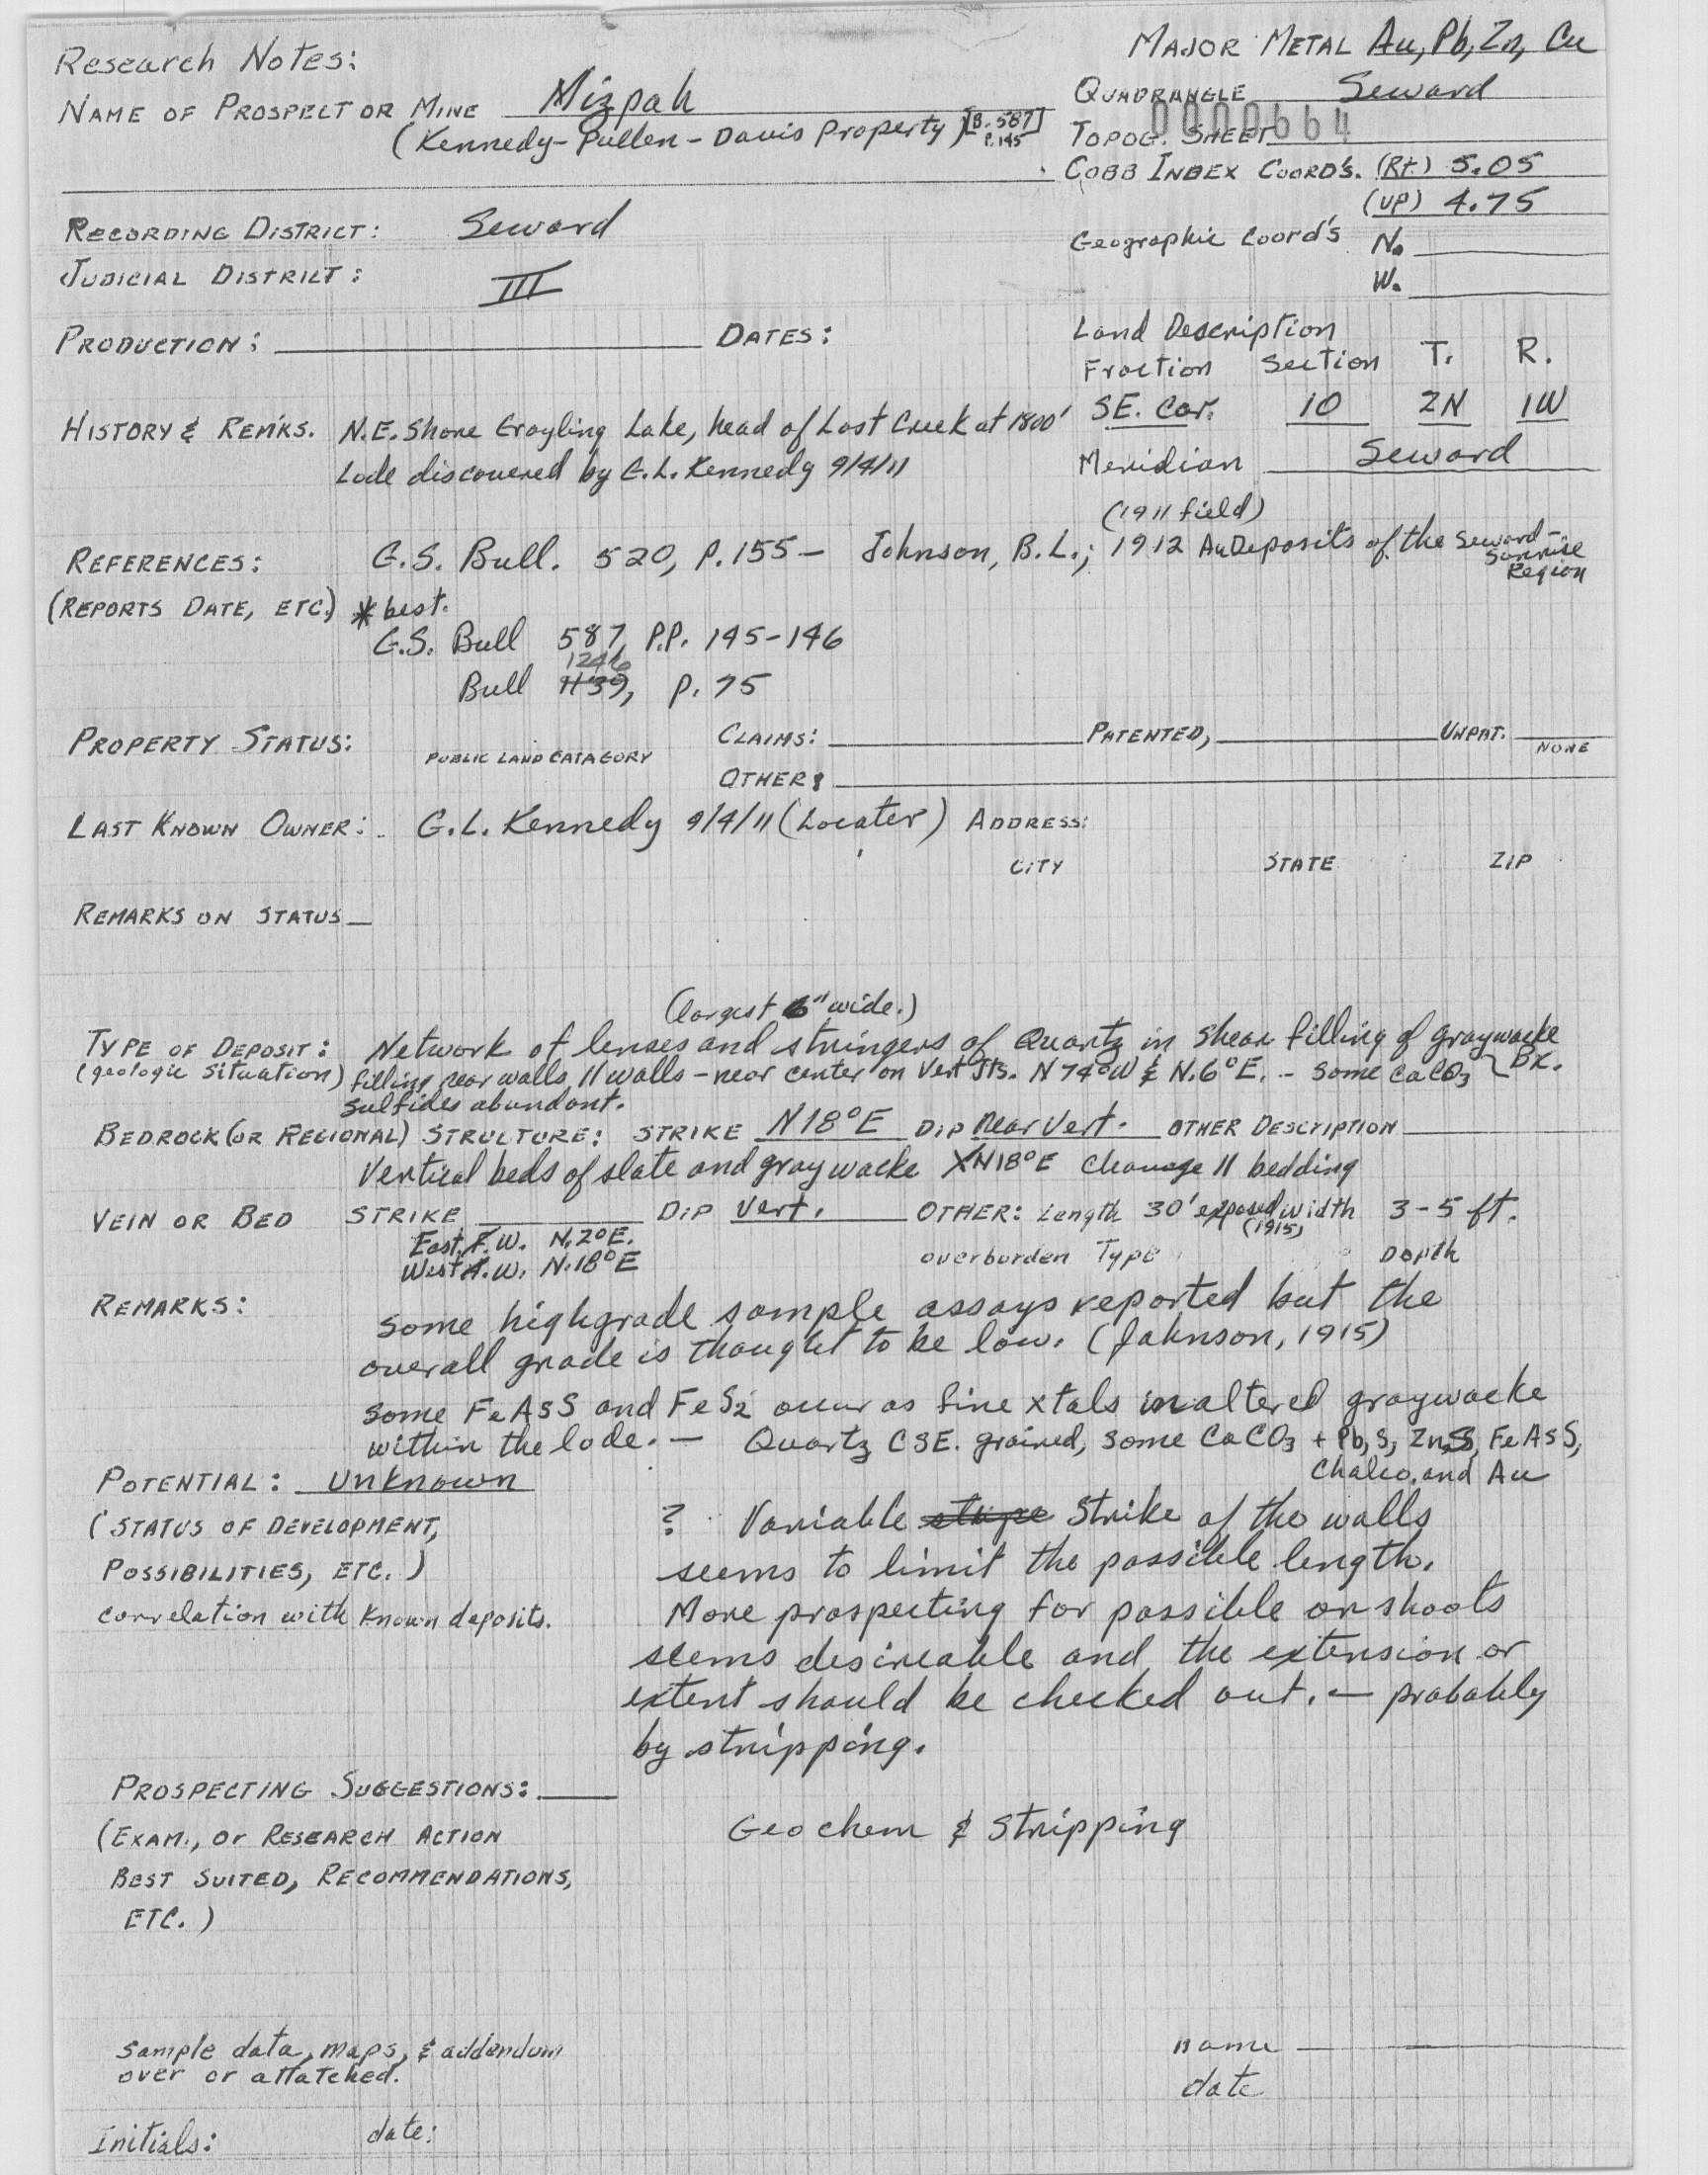 Research Notes:
MAJOR METAL Au, Pb, Zn, Cu
NAME OF PROSPECT OR MINE Mizpah
QUADRANGLE Seward
(Kennedy-Pullen-Davis Property) [B. 587 P. 145]
0000664
TOPOG. SHEET
COBB INDEX COORD'S. (Rt.) 5.05
(UP) 4.75
RECORDING DISTRICT: Seward
Geographic Coord's N.
W.
JUDICIAL DISTRICT: III
PRODUCTION: DATES:
Land Description
Fraction Section T. R.
SE. Cor. 10 2N 1W
HISTORY & REM'KS. N.E. Shore Grayling Lake, head of Lost Creek at 1800'
Lode discovered by G.L. Kennedy 9/4/11
Meridian Seward
(1911 field)
REFERENCES: G.S. Bull. 520, P. 155 - Johnson, B.L.; 1912 Au Deposits of the Seward-Sunrise Region
(REPORTS DATE, ETC.) * best.
G.S. Bull 587, P.P. 145-146
1246
Bull 1139, p. 75
PROPERTY STATUS: PUBLIC LAND CATAGORY CLAIMS: PATENTED, UNPAT. NONE
OTHER:
LAST KNOWN OWNER: G.L. Kennedy 9/4/11 (Locater) ADDRESS:
CITY STATE ZIP
REMARKS ON STATUS
(largest 6" wide.)
TYPE OF DEPOSIT: Network of lenses and stringers of Quartz in shear filling of graywacke Bx.
(geologic situation) filling near walls // walls - near center on Vert Jts. N 74° W & N. 6° E. - some CaCO3
Sulfides abundant.
BEDROCK (OR REGIONAL) STRUCTURE: STRIKE N 18° E DIP Near Vert. OTHER DESCRIPTION
Vertical beds of slate and graywacke N18°E // bedding
VEIN OR BED STRIKE DIP Vert. OTHER: Length 30' exposed (1915) width 3-5 ft.
East F.W. N. 2° E.
West H.W. N. 18° E
overburden Type Depth
REMARKS: some highgrade sample assays reported but the
overall grade is thought to be low. (Johnson, 1915)
some FeAsS and FeS2 occur as fine xtals in altered graywacke
within the lode. - Quartz CSE. grained, some CaCO3 + Pb,S, Zn,S, FeAsS,
Chalco. and Au
POTENTIAL: Unknown
(STATUS OF DEVELOPMENT,
POSSIBILITIES, ETC.)
correlation with known deposits.
? Variable Strike of the walls
seems to limit the possible length.
More prospecting for possible or shoots
seems desireable and the extension or
extent should be checked out. - probably
by stripping.
PROSPECTING SUGGESTIONS:
(EXAM., or RESEARCH ACTION
BEST SUITED, RECOMMENDATIONS,
ETC.)
Geochem & Stripping
sample data, maps, & addendum
over or attatched.
name
date
Initials: date: